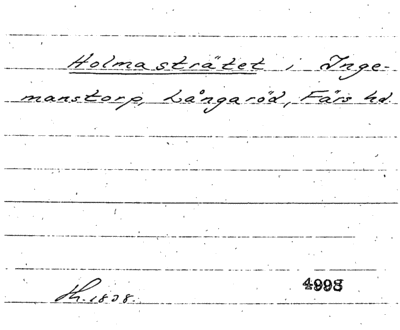 Holmasträtet i Inge-
manstorp, Långaröd, Färs hd.
Sk. 1838. 4998